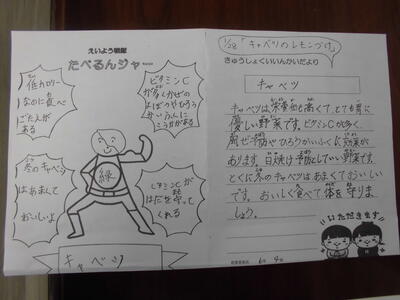 えいよう戦隊
たべるんジャー
低カロリー
なのに食べ
ごたえが
ある
ビタミンC
が多く
かぜの
よぼうやひろう
かいふくに
こうかがある
冬のキャベツ
はあまくて
おいしいよ
緑
ビタミンCが
はだを守って
くれる
キャベツ
1/28「キャベツのレモンづけ」
きゅうしょくいいんかいだより
キャベツ
キャベツは栄養価も高くて、とても胃に
優しい野菜です。ビタミンCが多く、
風ぜ予防やひろうかいふくに効果が
あります。日焼け予防としていい野菜です。
とくに冬のキャベツはあまくておいし
いです。おいしく食べて体を守りま
しょう。
いただきます